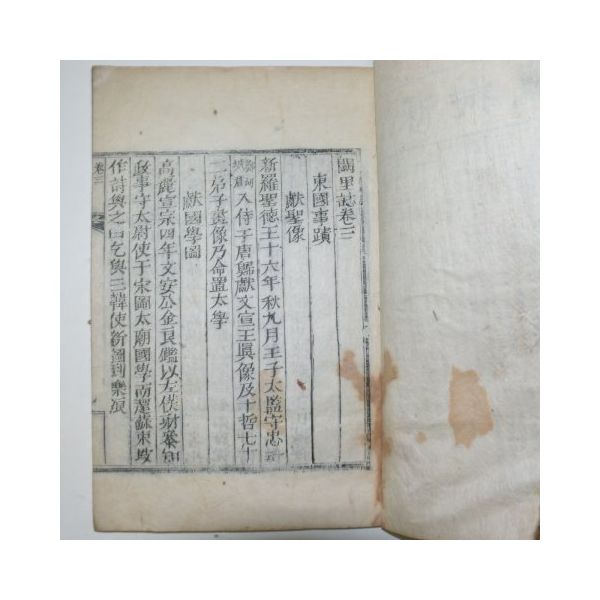 闕里誌卷三
東國事蹟
獻聖像
新羅聖德王十六年秋九月王子太監守忠
入侍于唐歸獻文宣王眞像及十哲七十
二弟子眞像乃命置太學
獻國學圖
高麗宣宗四年文安公金良鑑以左僕射
政事守太尉使于宋圖太廟國學而還蘇東坡
作詩與之曰乞與三韓使新圖到樂浪
卷三